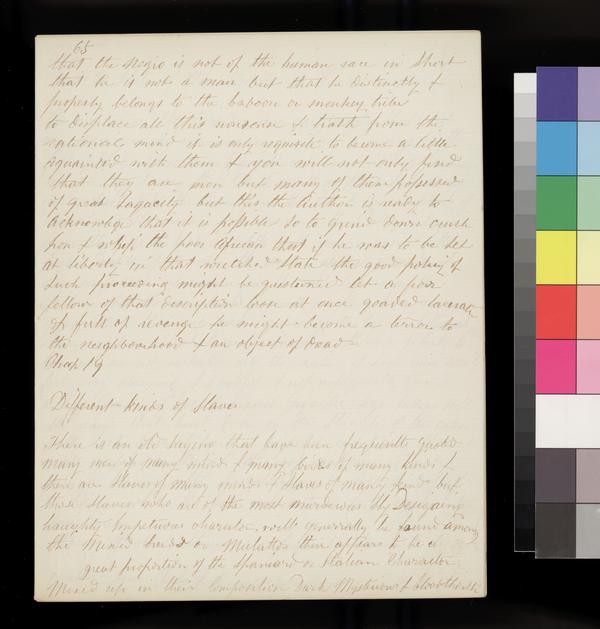 65
that the Negro is not of the human race in short
that he is not a man but that he distinctly &
properly belongs to the baboon or monkey tribe
to displace all this nonsense & trash from the
rational mind it is only requisite to become a little
aquainted with them & you will not only find
that they are men but many of them possessed
of great sagacity but this the Author is ready to
acknowledge that it is possible so to grind down crush
him & whip the poor African that if he was to be set
at liberty in that wretched state the good policy of
such proceeding might be questioned let a poor
fellow of that description loose at once goaded lacerate
& full of revenge he might become a terror to
the neighbourhood & an object of dread
Chap 19
Different kinds of Slaves
There is an old saying that have been frequently quoted
many men of many minds & many birds of many kinds &
there are slaves of many minds & slaves of many kinds but
those slaves who are of the most murderous Sly Designing
haughty Impetuous character will generally be found among
the Mixed breed or Mulattos there appears to be a
great proportion of the Spaniard or Italian Character
Mixed up in their Composition Dark Mysterious &